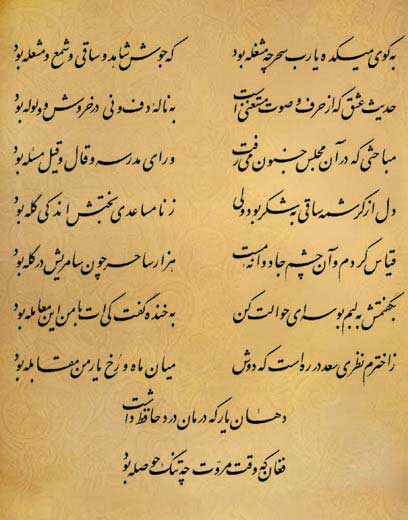 به کوی میکده یا رب سحر چه مشغله بود که جوش شاهد و ساقی و شمع و مشعله بود
حدیث عشق که از حرف و صوت مستغنی است به ناله دف و نی در خروش و ولوله بود
مباحثی که در آن مجلس جنون می‌رفت ورای مدرسه و قال و قیل مسئله بود
دل از کرشمه ساقی به شکر بود ولی ز نامساعدی بختش اندکی گله بود
قیاس کردم و آن چشم جادوانه مست هزار ساحر چون سامریش در گله بود
بگفتمش به لبم بوسه‌ای حوالت کن به خنده گفت کی‌ات با من این معامله بود
ز اخترم نظری سعد در ره است که دوش میان ماه و رخ یار من مقابله بود
دهان یار که درمان درد حافظ داشت
فغان که وقت مروت چه تنگ حوصله بود